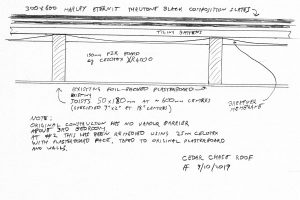 300x600 MARLEY ETERNIT THRUTONE BLACK COMPOSITION SLATES
TILING BATTENS
150mm PIR BOARD
eg CELOTEX XR4000
BREATHER
MEMBRANE
EXISTING FOIL-BACKED PLASTERBOARD
JOISTS 50x180mm AT ~ 600mm CENTRES
(SPECIFIED 7"x2" AT 18" CENTRES)
NOTE:
ORIGINAL CONSTRUCTION HAS NO VAPOUR BARRIER
ABOVE 3RD BEDROOM
AT #2 THIS HAS BEEN REMEDIED USING 25mm CELOTEX
WITH PLASTERBOARD FACE, TAPED TO ORIGINAL PLASTERBOARD
AND WALLS.
CEDAR CHASE ROOF
9/10/2019